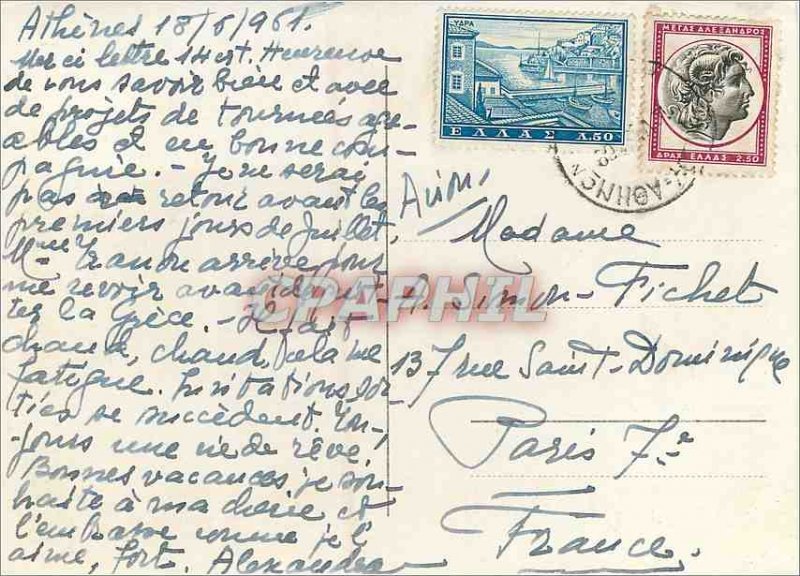 Athènes 18/6/961.
Merci lettre 14 ct. Heureuse
de vous savoir bien et avec
de projets de tournées agré-
ables et en bonne com-
pagnie. - Je ne serai
pas de retour avant les
premiers jours de Juillet.
Mme arrive pour
me revoir avant de
ter la Grèce. - Il fait
chaud, chaud, cela me
fatigue. Invitations, sor-
ties se succèdent. Tou-
jours une vie de rêve!
Bonnes vacances je sou-
haite à ma chérie et
l'embrasse comme je l'
aime, fort. Alexandra
ΥΔΡΑ
ΕΛΛΑΣ Λ.50
ΜΕΓΑΣ ΑΛΕΞΑΝΔΡΟΣ
ΔΡΑΧ ΕΛΛΑΣ 2.50
ΑΘΗΝΩΝ
Avion,
Madame
A. Simon-Fichet
137 rue Saint-Dominique
Paris 7e
France.
CPAPHIL